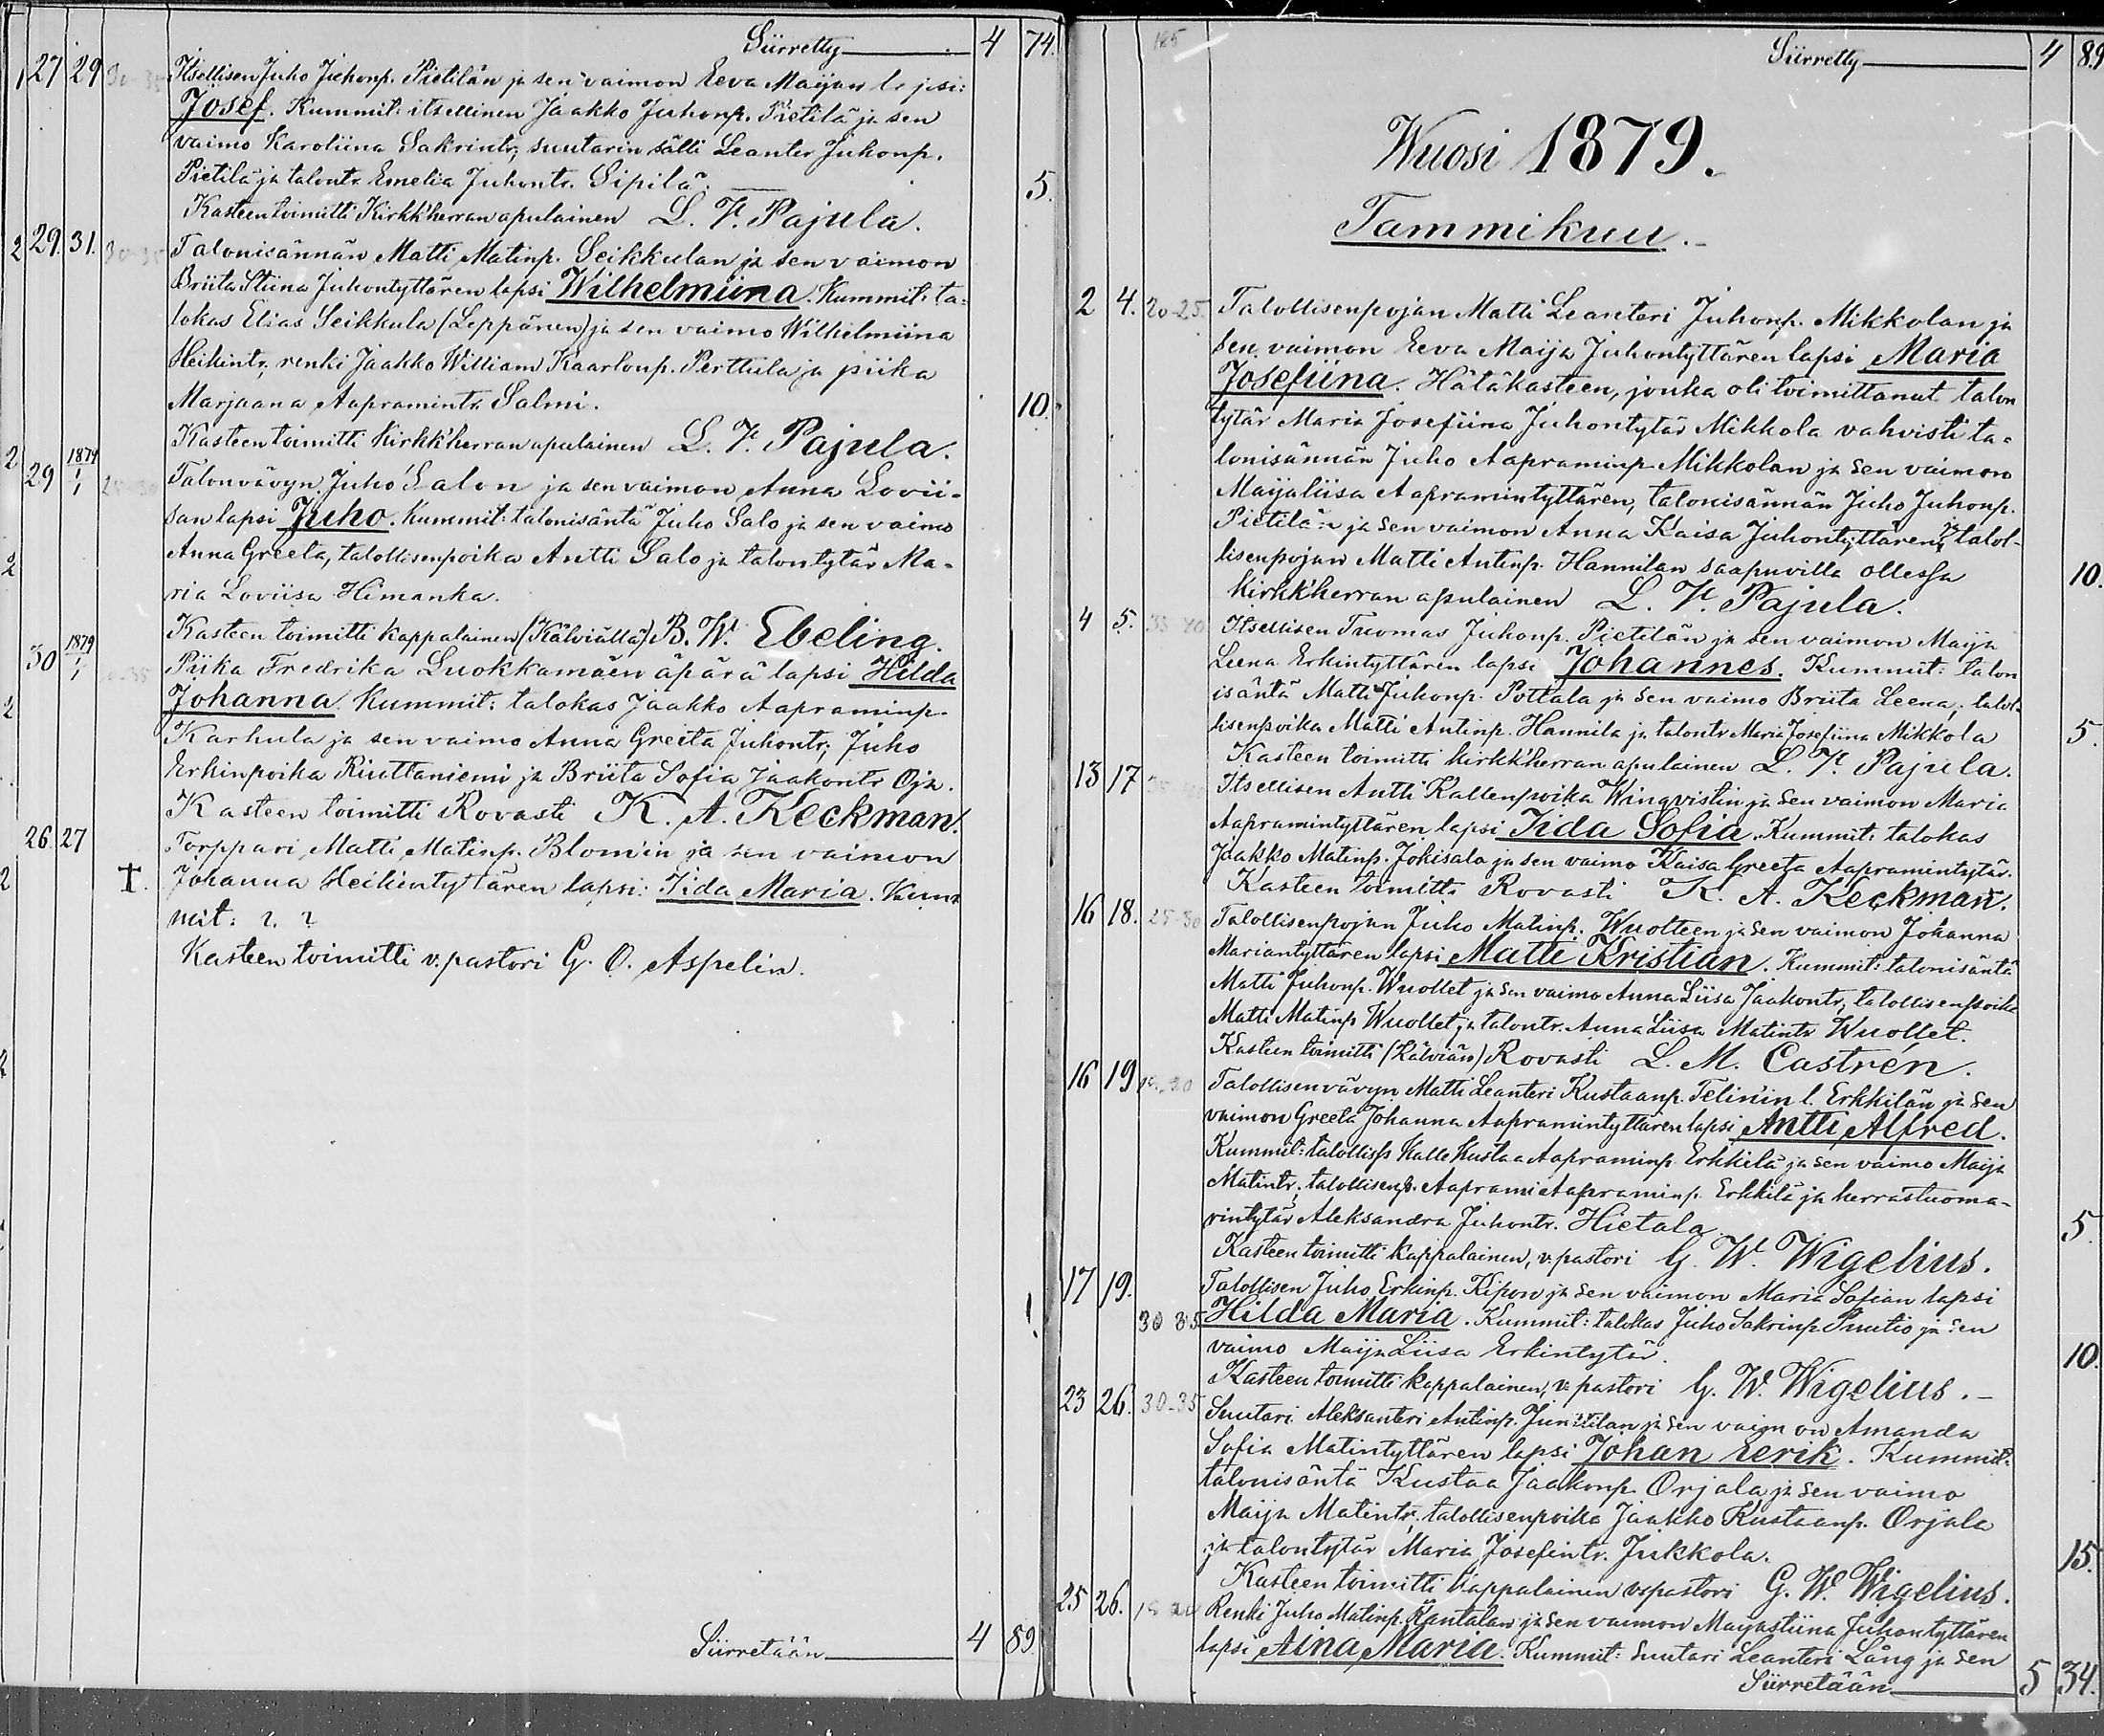 Siirretty 4 74.
27 29 30-35 Itsellisen Juho Juhonp. Pietilän ja sen vaimon Eeva Maijan l. psi:
Josef. Kummit: itsellinen Jaakko Juhonp. Pietilä ja sen
vaimo Karoliina Sakrintr; suutarin sälli Leanter Juhonp.
Pietilä ja talontr. Emelia Juhontr. Sipilä. 5.
Kasteen toimitti Kirkk'herran apulainen L. F. Pajula.
29. 31. 30-35 Talonisännän Matti Matinp. Seikkulan ja sen vaimon
Briita Stiina Juhontyttären lapsi Wilhelmiina. Kummit: ta-
lokas Elias Seikkula (Leppänen) ja sen vaimo Wilhelmiina
Heikintr; renki Jaakko William Kaarlonp. Perttula ja piika
Marjaana Aapramintr. Salmi. 10.
Kasteen toimitti Kirkk'herran apulainen L. F. Pajula.
29 1879 1/1 Talonvävyn Juho Salon ja sen vaimon Anna Lovii-
san lapsi Juho. Kummit: talonisäntä Juho Salo ja sen vaimo
Anna Greeta, talollisenpoika Antti Salo ja talontytär Ma-
ria Loviisa Himanka.
Kasteen toimitti kappalainen (Kälviällä) B. W. Ebeling.
30 1879 1/1 Piika Fredrika Luokkamäen äpärä lapsi Hilda
Johanna. Kummit: talokas Jaakko Aapraminp.
Karhula ja sen vaimo Anna Greeta Juhontr; Juho
Erkinpoika Riuttaniemi ja Briita Sofia Jaakontr Oja.
Kasteen toimitti Rovasti K. A. Keckman.
26. 27 Torppari Matti Matinp. Blomin ja sen vaimon
†. Johanna Heikintyttären lapsi: Iida Maria. Kum-
mit: ? ?
Kasteen toimitti v. pastori G. O. Aspelin.
Siirretään 4 89.
185 Siirretty 4 89
Wuosi 1879.
Tammikuu.
2 4. 20-25. Talollisenpojan Matti Leanteri Juhonp. Mikkolan ja
sen vaimon Eeva Maija Juhontyttären lapsi Maria
Josefiina. Hätäkasteen, jonka oli toimittanut talon
tytär Maria Josefiina Juhontytär Mikkola vahvisti ta-
lonisännän Juho Aapraminp Mikkolan ja sen vaimon
Maijaliisa Aapramintyttären, talonisännän Juho Juhonp.
Pietilän ja sen vaimon Anna Kaisa Juhontyttären, ja talol-
lisenpojan Matti Antinp. Hannilan saapuvilla ollessa 10.
Kirkk'herran apulainen L. F. Pajula.
4 5. 35 40 Itsellisen Tuomas Juhonp. Pietilän ja sen vaimon Maija
Leena Erkintyttären lapsi Johannes. Kummit: talon
isäntä Matti Juhonp. Pottala ja sen vaimo Briita Leena; talol-
lisenpoika Matti Antinp. Hannila ja talontr Maria Josefiina Mikkola 5.
Kasteen toimitti kirkk'herran apulainen L. F. Pajula.
13 17 Itsellisen Antti Kallenpoika Winqvistin ja sen vaimon Maria
Aapramintyttären lapsi Iida Sofia. Kummit: talokas
Jaakko Matinp. Jokisalo ja sen vaimo Kaisa Greeta Aapramintytär.
Kasteen toimitti Rovasti K. A. Keckman.
16 18. 25-30 Talollisenpojan Juho Matinp. Wuolteen ja sen vaimon Johanna
Mariantyttären lapsi Matti Kristian. Kummit: talonisäntä
Matti Juhonp. Wuollet ja sen vaimo Anna Liisa Jaakontr; talollisenpoika
Matti Matinp Wuollet ja talontr. Anna Liisa Matintr Wuollet.
Kasteen toimitti (Kälviän) Rovasti L. M. Castrén.
16 19 Talollisenvävyn Matti Leanteri Kustaanp. Telinin l. Erkkilän ja sen
vaimon Greeta Johanna Aapramintyttären lapsi Antti Alfred.
Kummit: talollisp Kalle Kustaa Aapraminp. Erkkilä ja sen vaimo Maija
Matintr; talollisenp. Aaprami Aapraminp. Erkkilä ja herrastuoma-
rintytär Aleksandra Juhontr. Hietala 5.
Kasteen toimitti kappalainen, v. pastori G. W. Wigelius.
17 19. Talollisen Juho Erkinp. Kipon ja sen vaimon Maria Sofian lapsi
30 35 Hilda Maria. Kummit: talokas Juho Sakrinp Puutio ja sen
vaimo Maija Liisa Erkintytär. 10.
Kasteen toimitti kappalainen, v. pastori G. W. Wigelius.
23 26. 30-35 Suutari Aleksanteri Antinp. Junttilan ja sen vaimon Amanda
Sofia Matintyttären lapsi Johan Eerik. Kummit:
talonisäntä Kustaa Jaakonp. Orjala ja sen vaimo
Maija Matintr, talollisenpoika Jaakko Kustaanp. Orjala
ja talontytär Maria Josefintr. Jukkola. 15.
Kasteen toimitti kappalainen v. pastori G. W. Wigelius.
25 26. Renki Juho Matinp. Rantalan ja sen vaimon Maijastiina Juhontyttären
lapsi Aina Maria. Kummit: Suutari Leanteri Lång ja sen
Siirretään 5 34.